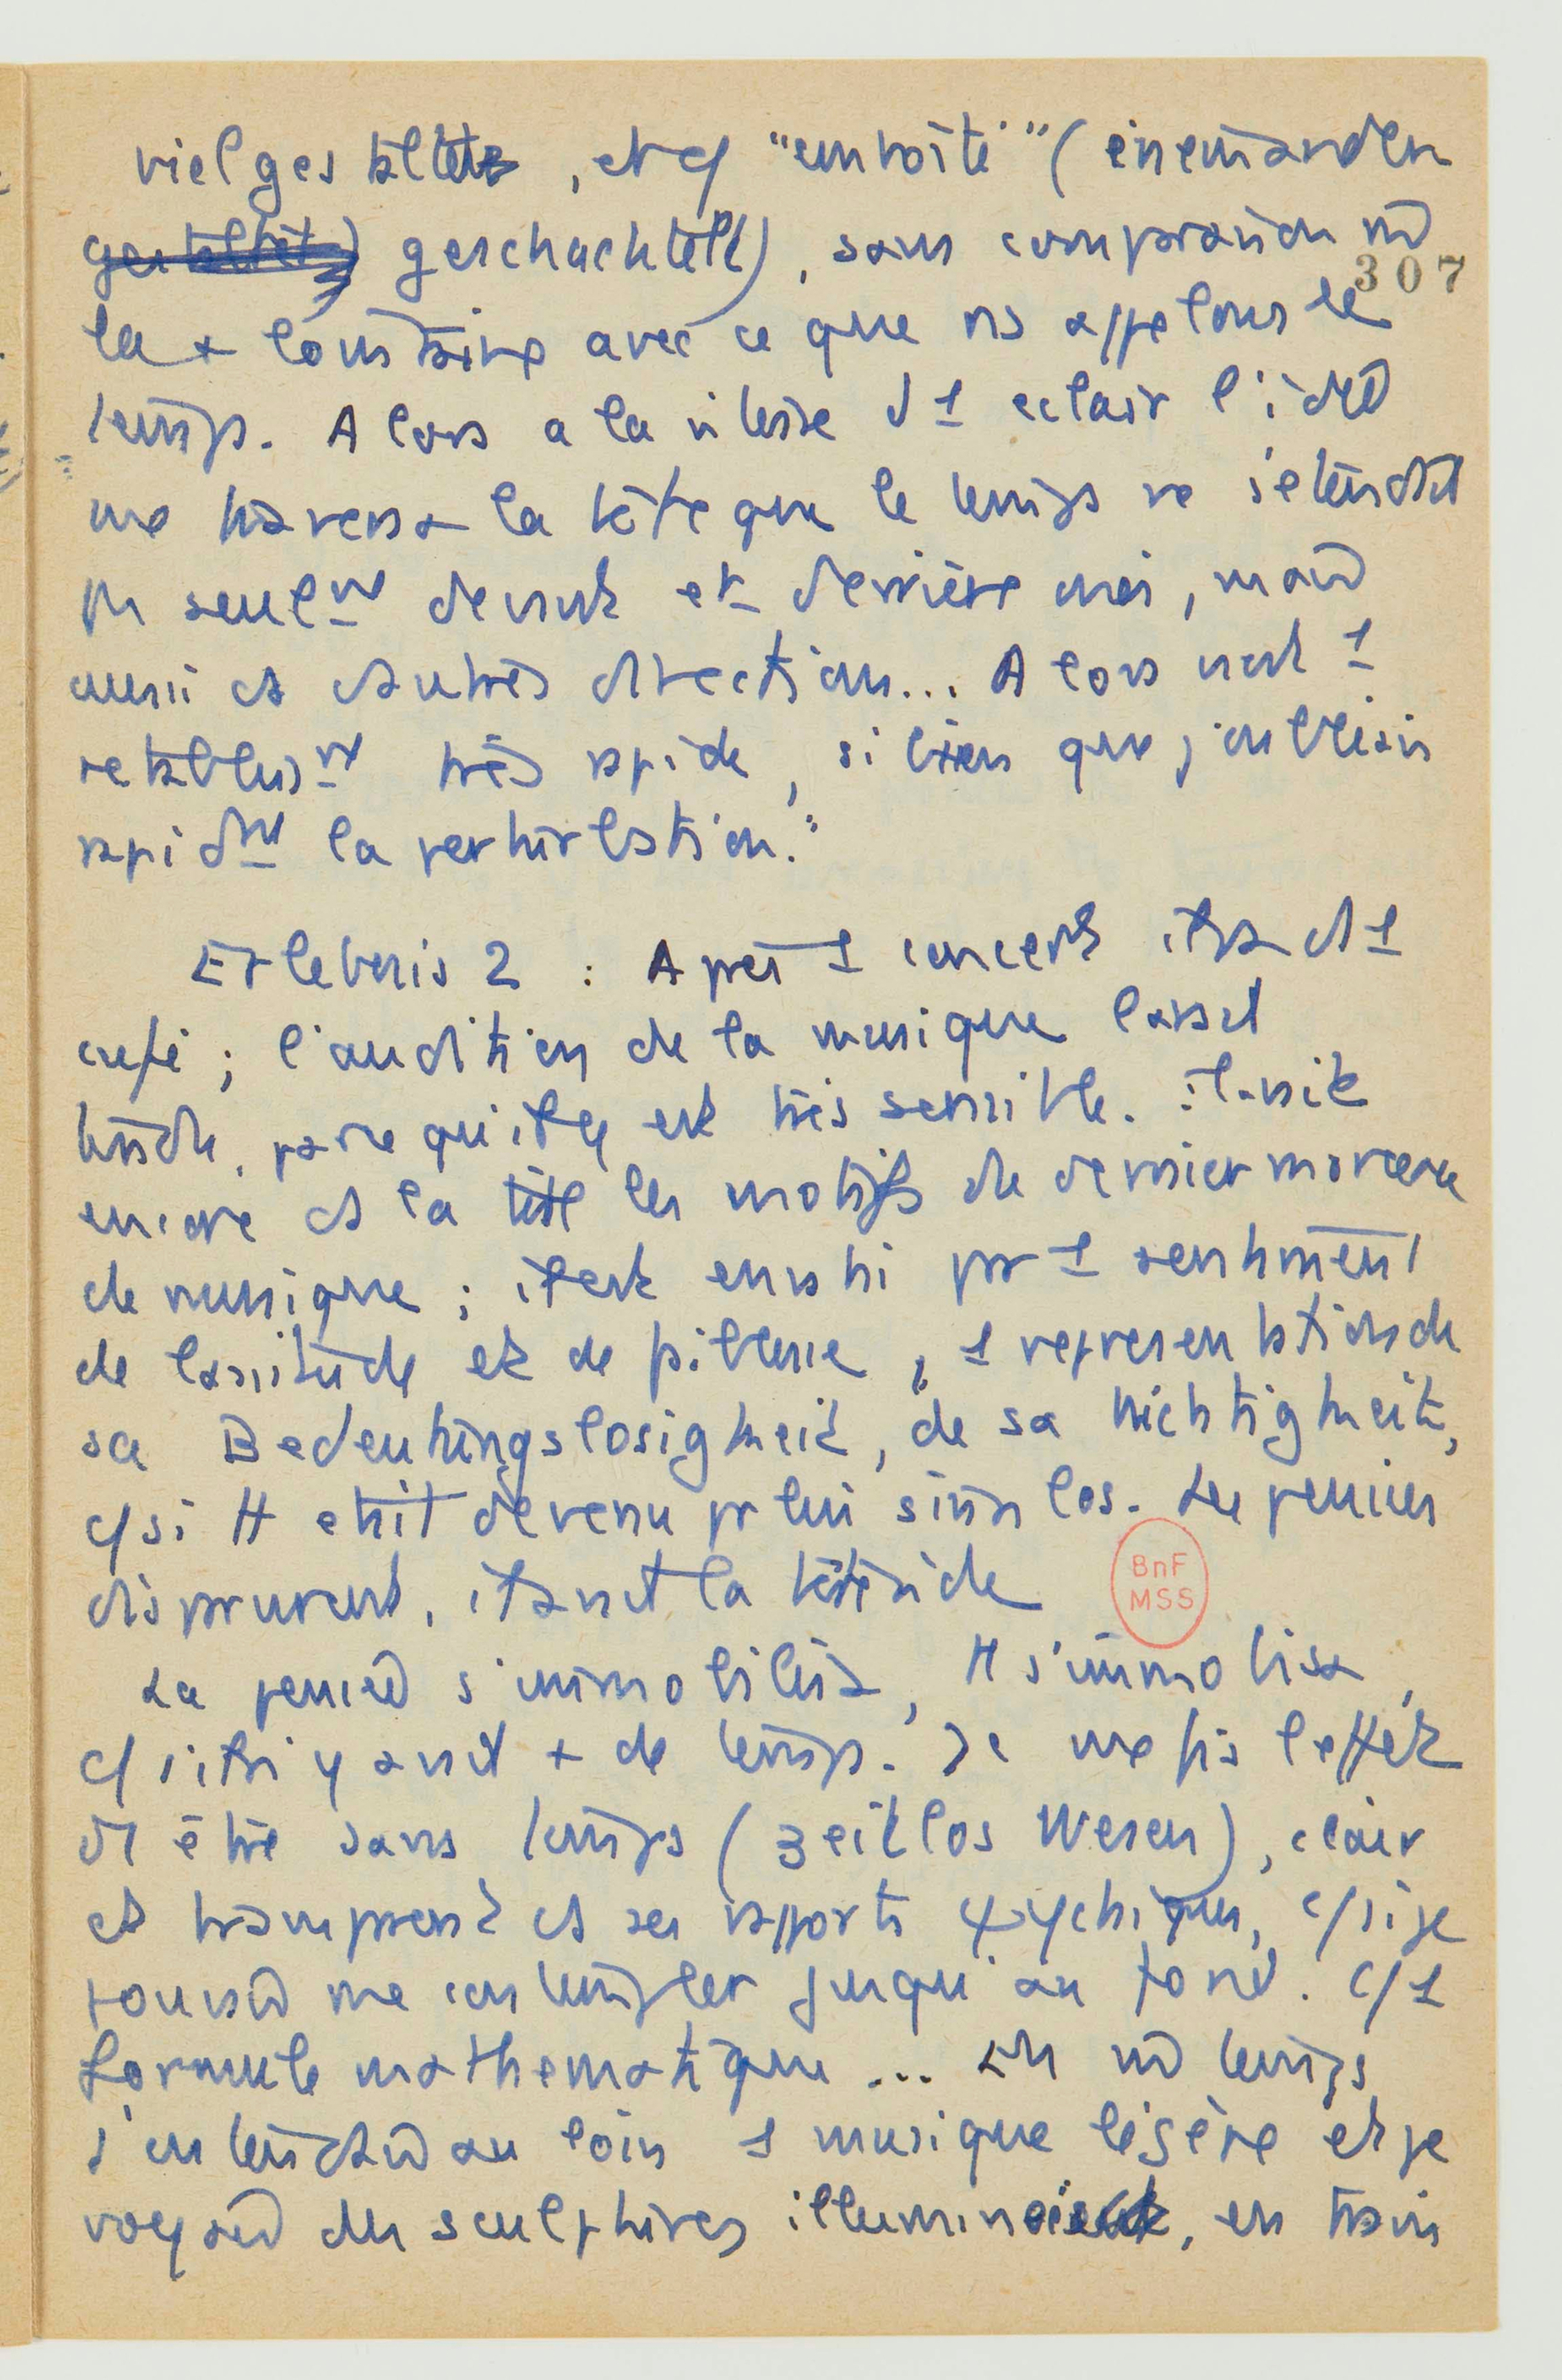 vielgestaltet, et c/ "emboité" (einemander
geschachtelt), sans comparaison m̄
307
la + lointaine avec ce que ns appelons le
temps. Alors a la vitesse d'1 eclair l'idée
me traversa la tête que le temps ne s'étendait
pas seulnt devant et derrière moi, mais
aussi ds d'autres directions... Alors vint 1
retablisnt très rapide, si bien que j'oubliais
rapidnt la perturbation."
Erlebnis 2 : Après 1 concert ds 1
café ; l'audition de la musique lassait
parce qu'il y est très sensible. il avait
encore ds la tête les motifs du dernier morceau
de musique ; il est envahi par 1 sentiment
de lassitude et de , 1 representation de
sa Bedeutungslosigkeit, de sa Nichtigkeit,
c/ si tt etait devenu pr lui sinnlos. Les pensées
disparurent, il avait la tête vide
La pensée s'immobilisa, tt s'immobilisa,
c/ s'il n'y avait + de temps. Je me fis l'effet
d'1 être sans temps (zeitlos Wesen), clair
et transparent ds ses rapports psychiques, c/ si je
pouvais me contempler jusqu'au fond. C/ 1
formule mathematique... En m̄ temps
j'entendais au loin 1 musique légère et je
voyais des sculptures illuminaient, en train